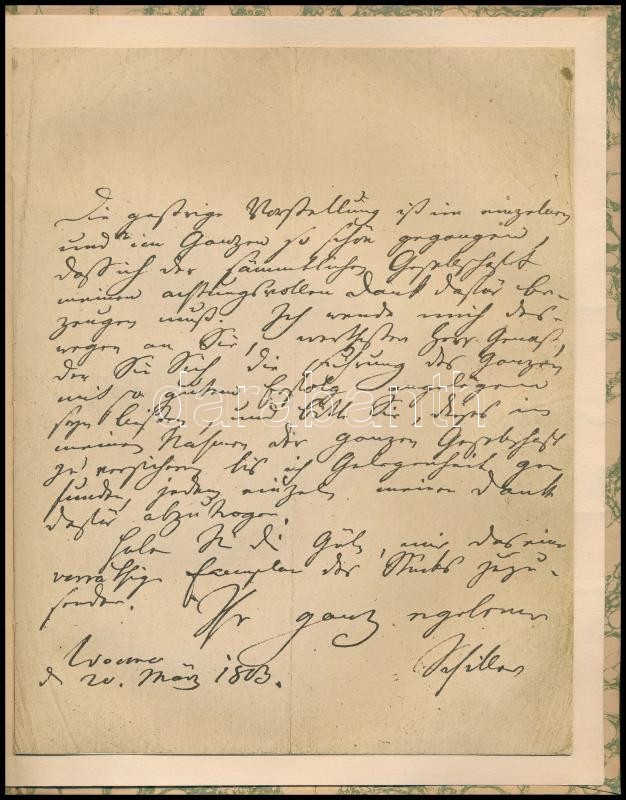 Die gestrige Vorstellung ist im einzelnen
und im Ganzen so schön gegangen,
daß ich der sämmtlichen Gesellschaft
meinen achtungsvollen Dank dafür be-
zeugen muß. Ich wende mich des-
wegen an Sie, werthester Herr Genast,
der Sie Sich die Führung des Ganzen
mit so gutem Erfolg angelegen
seyn ließen und bitte Sie, dieses in
meinem Nahmen der ganzen Gesellschaft
zu versichern bis ich Gelegenheit ge-
funden, jedem einzeln meinen Dank
dafür abzutragen.
Haben Sie die Güte, mir das
vorräthige Exemplar des Stücks zuzu-
senden.
Ihr ganz ergebener
Schiller
20. März 1803.
darabanth